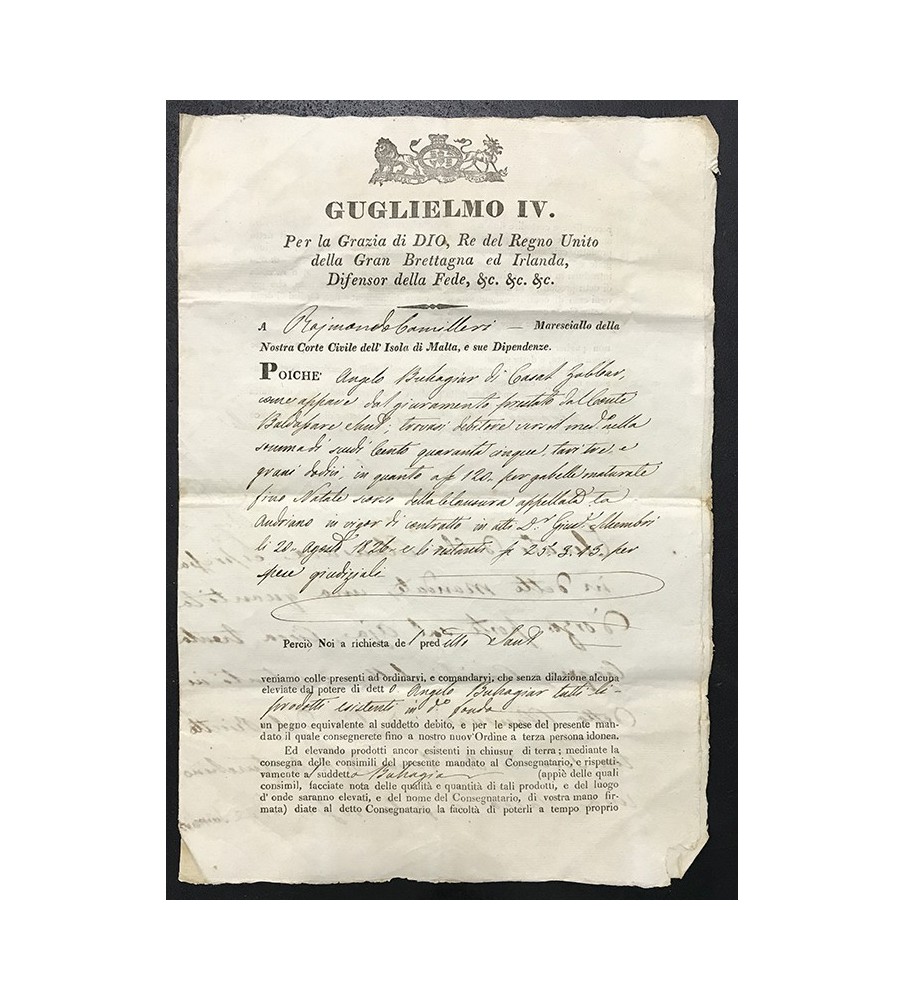 GUGLIELMO IV.
Per la Grazia di DIO, Re del Regno Unito
della Gran Brettagna ed Irlanda,
Difensor della Fede, &c. &c. &c.
A Rajmondo Camilleri — Maresciallo della
Nostra Corte Civile dell' Isola di Malta, e sue Dipendenze.
POICHE' Angelo Buhagiar di Casal Zabbar,
come appare dal giuramento prestato dal Conte
Baldassare Sant, trovasi debitore verso il med. nella
somma di scudi Cento quaranta cinque, tari tre, e
grani dodici, in quanto a 120. per gabelle maturate
fino Natale scorso della Clausura appellata ta
Andriano in vigor di contratto in atti Dr. Giusẹ. Schembri
li 20. Agosto 1826 e li restanti 25. 3. 15. per
spese giudiziali
Perciò Noi a richiesta de l pred etto Sant
veniamo colle presenti ad ordinarvi, e comandarvi, che senza dilazione alcuna
eleviate dal potere di dett o Angelo Buhagiar tutti li
prodotti esistenti in do. fondo
un pegno equivalente al suddetto debito, e per le spese del presente man-
dato il quale consegnerete fino a nostro nuov' Ordine a terza persona idonea.
Ed elevando prodotti ancor esistenti in chiusur di terra; mediante la
consegna delle consimili del presente mandato al Consegnatario, e rispetti-
vamente a l suddett o Buhagiar (appiè delle quali
consimil, facciate nota delle qualità e quantità di tali prodotti, e del luogo
d' onde saranno elevati, e del nome del Consegnatario, di vostra mano fir-
mata) diate al detto Consegnatario la facoltà di poterli a tempo proprio